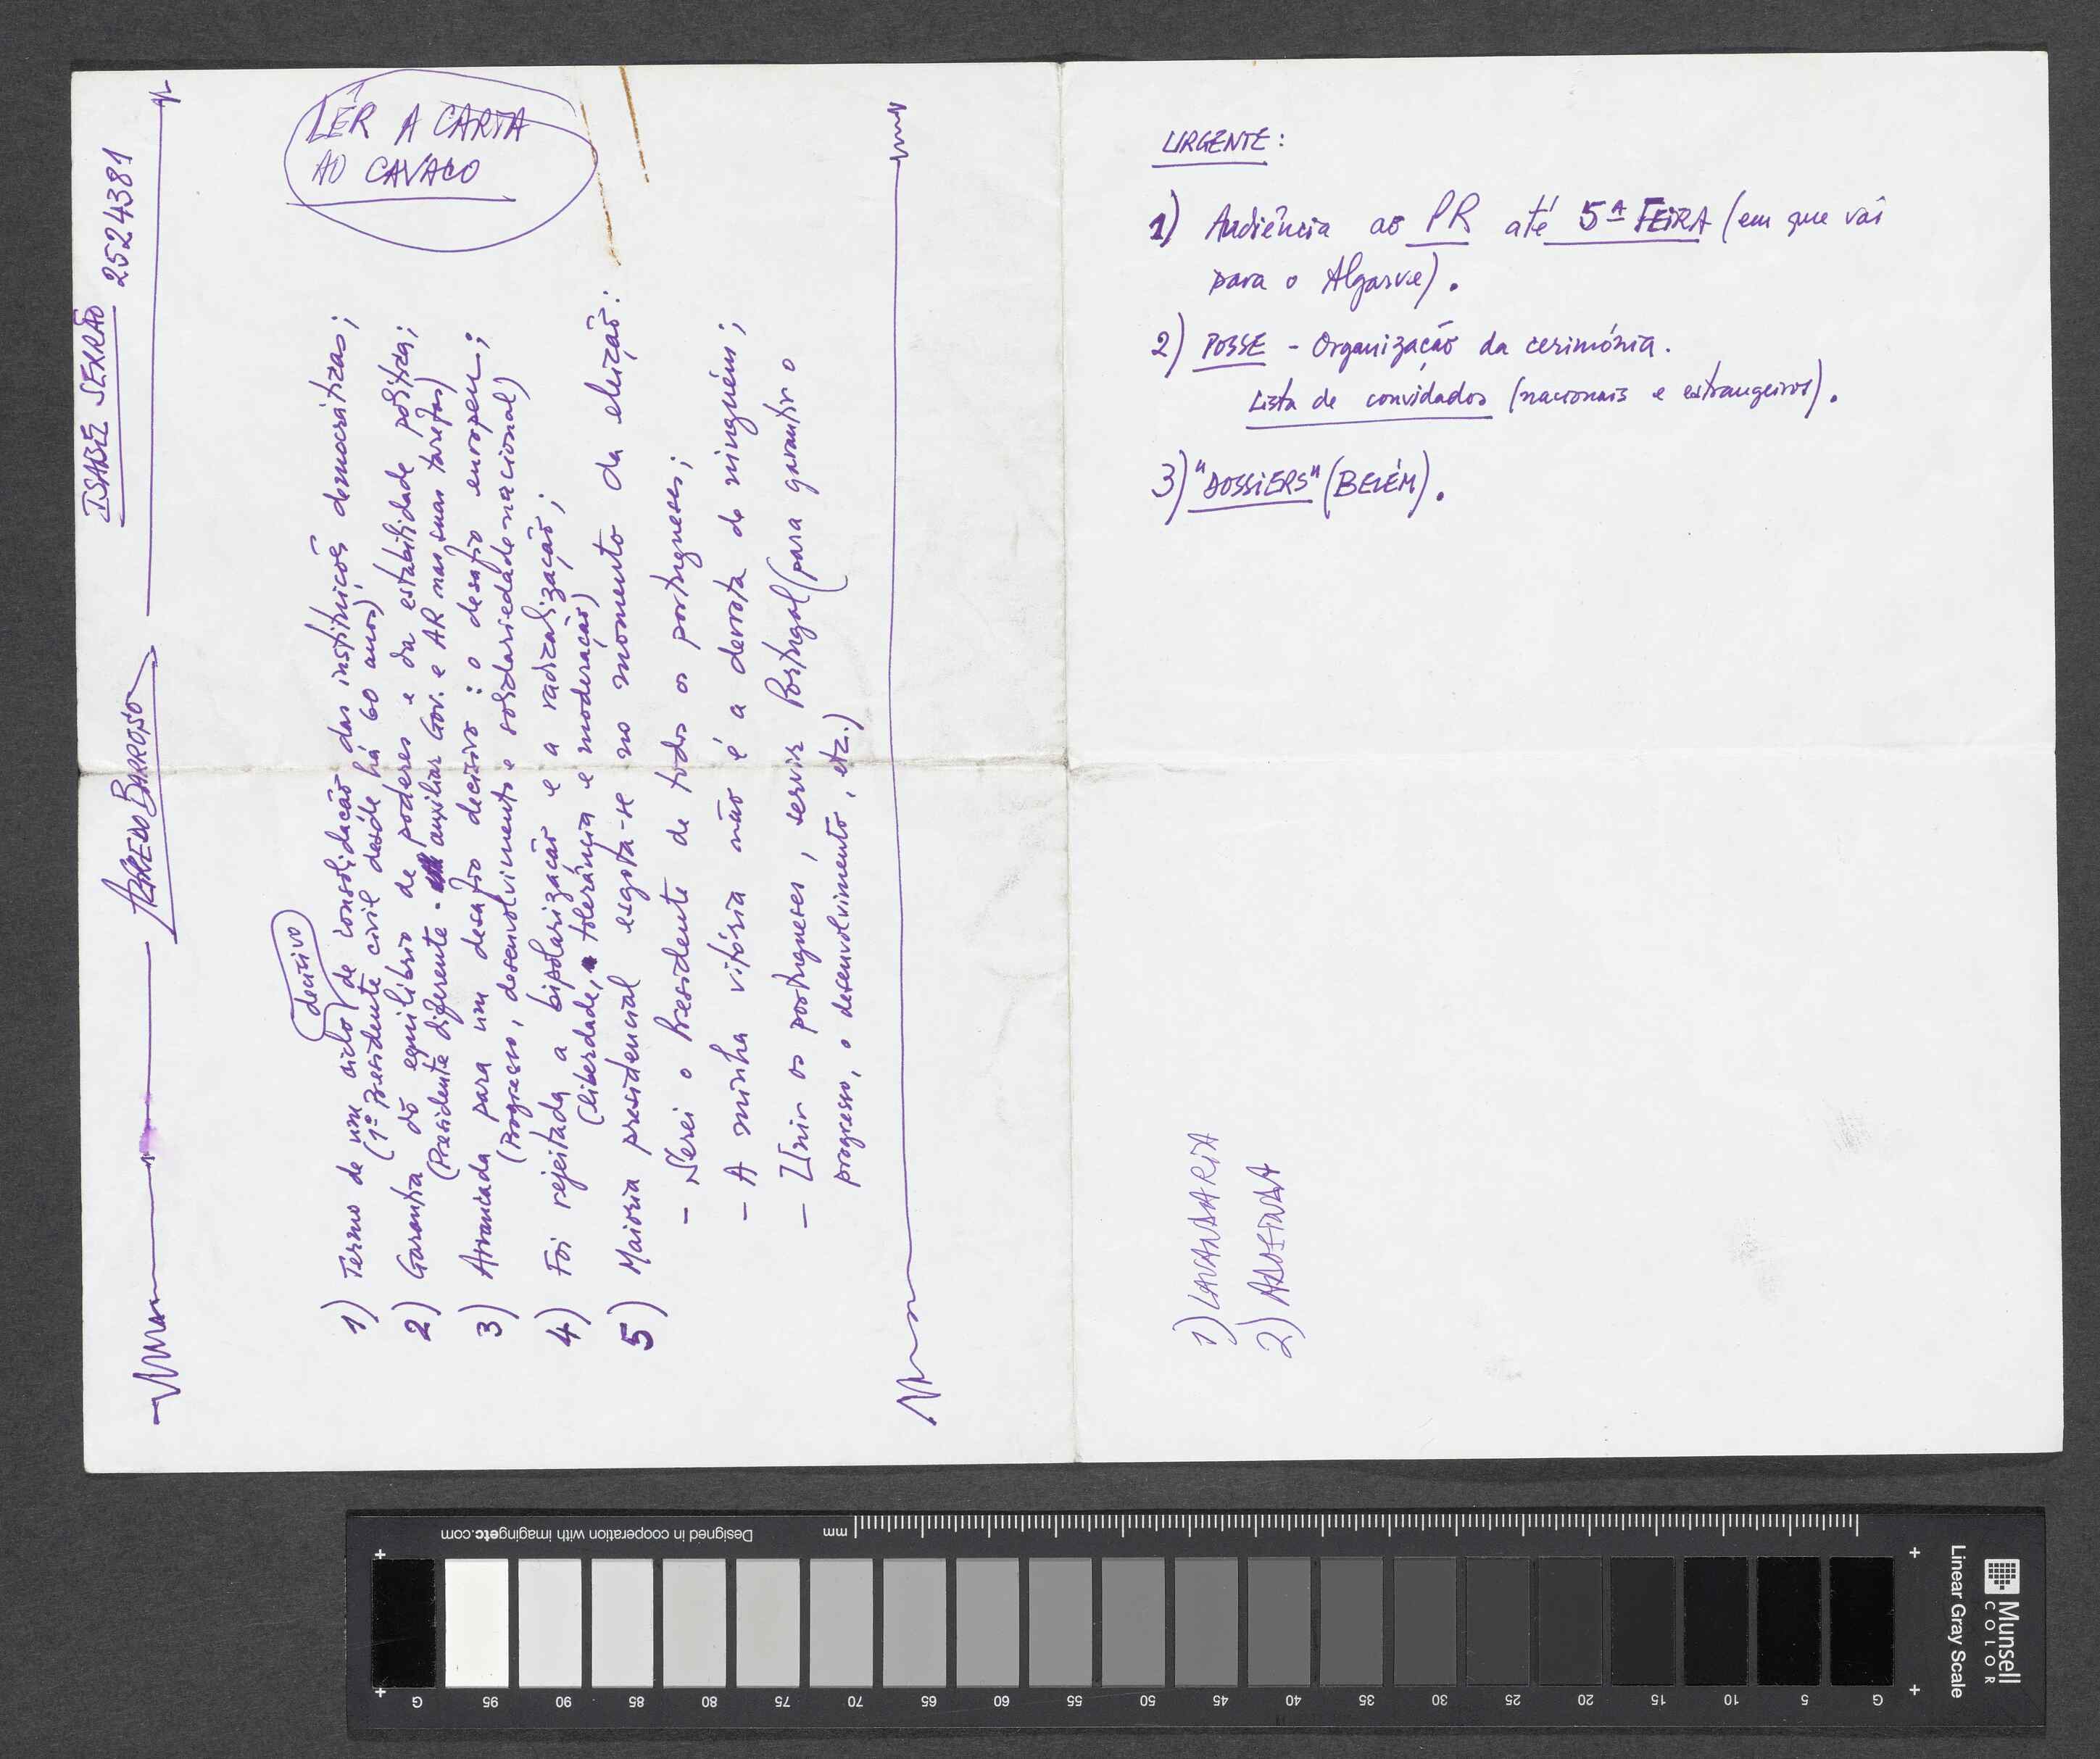 LÊR A CARTA
AO CAVACO
ISABEL SERRÃO 2524381
ALFREDO BARROSO
decisivo
1) Termo de um ciclo de consolidação das instituições democráticas;
(1º Presidente civil desde há 60 anos)
2) Garantia do equilíbrio de poderes e da estabilidade política;
(Presidente diferente - auxiliar Gov. e AR nas suas tarefas)
3) Arrancada para um desafio decisivo: o desafio europeu;
(Progresso, desenvolvimento e solidariedade nacional)
4) Foi rejeitada a bipolarização e a radicalização;
(liberdade, tolerância e moderação)
5) Maioria presidencial esgota-se no momento da eleição:
- Serei o Presidente de todos os portugueses;
- A minha vitória não é a derrota de ninguém;
- Unir os portugueses, servir Portugal (para garantir o
progresso, o desenvolvimento, etc.)
URGENTE:
1) Audiência ao PR até 5ª FEIRA (em que vai
para o Algarve).
2) POSSE - Organização da cerimónia.
Lista de convidados (nacionais e estrangeiros).
3) "DOSSIERS" (BELÉM).
1) LAVANDARIA
2)
Designed in cooperation with imagingetc.com
mm
G 95 90 85 80 75 70 65 60 55 50 45 40 35 30 25 20 15 10 5 G
Munsell
COLOR
Linear Gray Scale